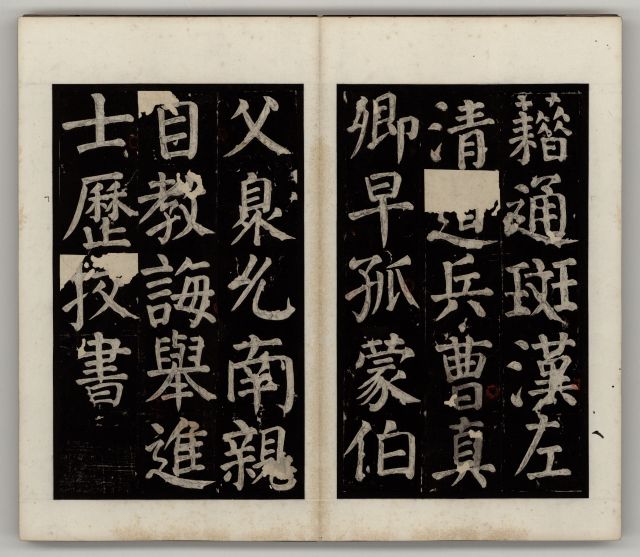 藉通斑漢左
清道兵曹真
卿早孤蒙伯
父臮允南親
自教誨舉進
士歷挍書